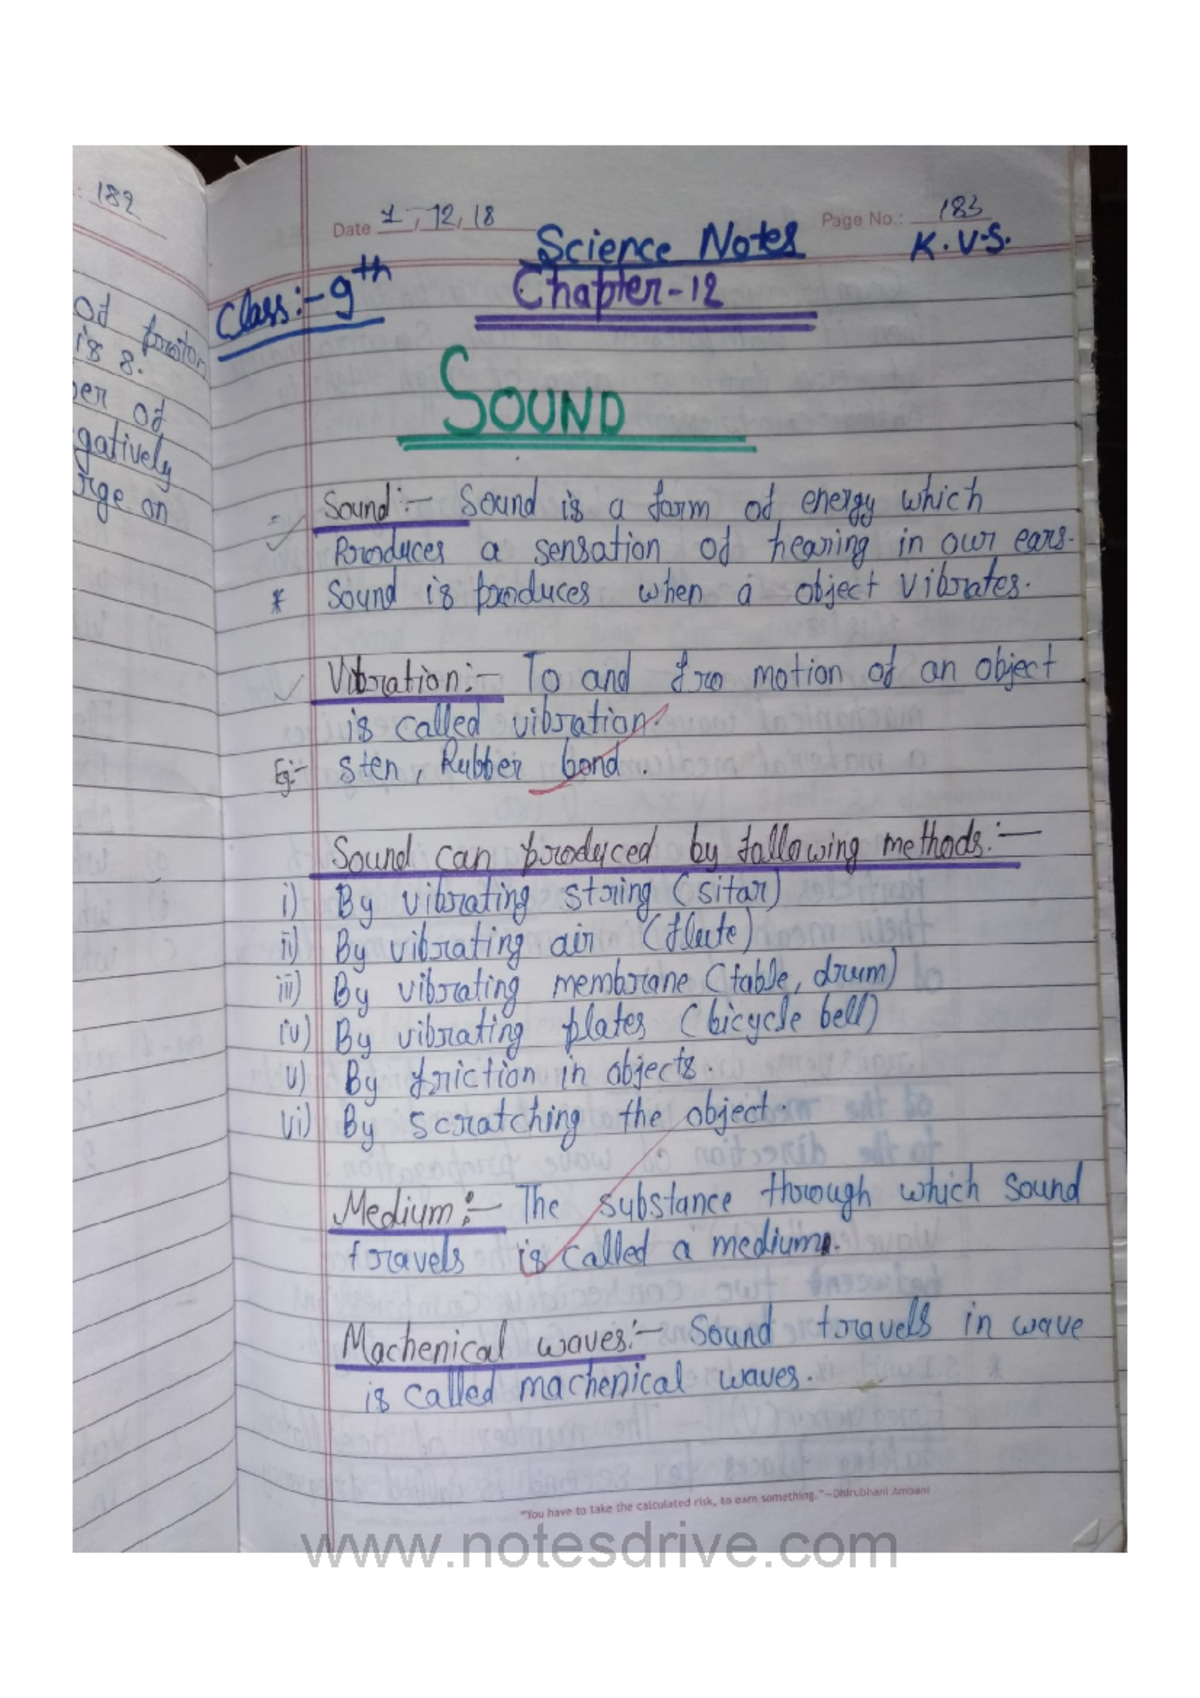 182
Of proton
is 8.
ber of
gatively
rge on
Date 1, 12, 18
Page No.: 183
Science Notes
K.V.S.
Class:- 9th
Chapter-12
SOUND
Sound:- Sound is a form of energy which
Produces a sensation of hearing in our ears.
* Sound is produces when a object vibrates.
Vibration:- To and fro motion of an object
is called vibration.
Eg:- sten, Rubber bond.
Sound can produced by following methods:-
i) By vibrating string (sitar)
ii) By vibrating air (flute)
iii) By vibrating membrane (table, drum)
iv) By vibrating plates (bicycle bell)
v) By friction in objects.
vi) By scratching the object.
Medium:- The substance through which sound
travels is called a medium.
Machenical waves:- Sound travels in wave
is called machenical waves.
"You have to take the calculated risk, to earn something."—Dhirubhani Ambani
www.notesdrive.com